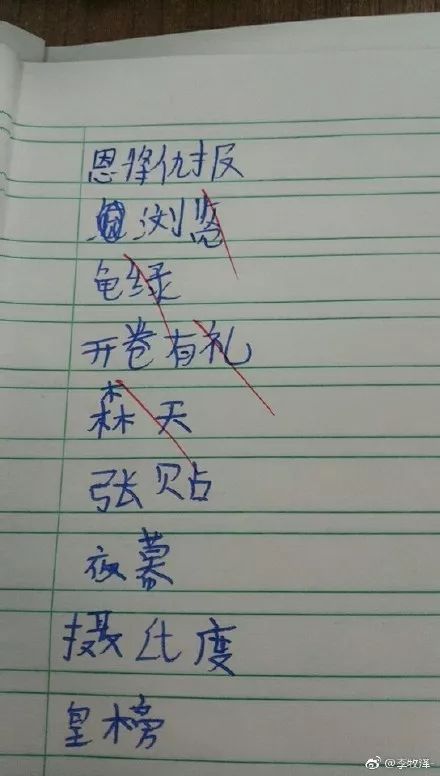 恩将仇报
浏览
龟绿
开卷有礼
森天
张贴
夜幕
摄氏度
皇榜
@李牧泽